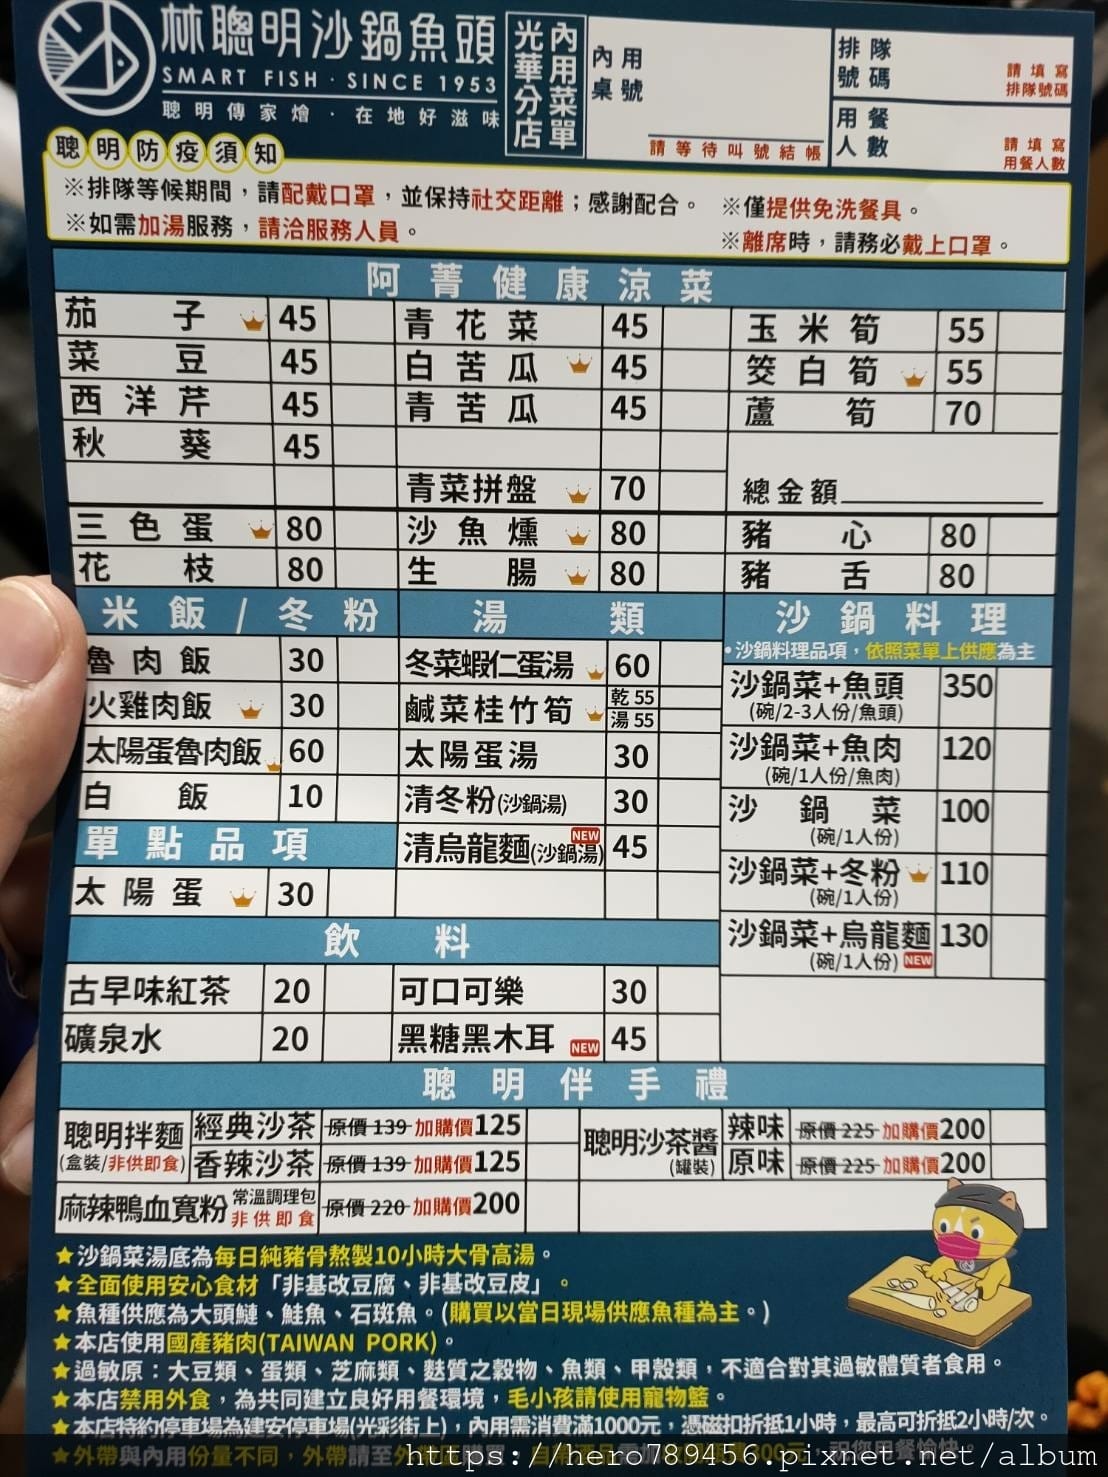 林聰明沙鍋魚頭
SMART FISH · SINCE 1953
聰明傳家燴 · 在地好滋味
光華分店
內用菜單
內用桌號
請等待叫號結帳
排隊號碼
請填寫排隊號碼
用餐人數
請填寫用餐人數
聰明防疫須知
※排隊等候期間，請配戴口罩，並保持社交距離；感謝配合。 ※僅提供免洗餐具。
※如需加湯服務，請洽服務人員。 ※離席時，請務必戴上口罩。
阿菁健康涼菜
茄子 45 青花菜 45 玉米筍 55
菜豆 45 白苦瓜 45 筊白筍 55
西洋芹 45 青苦瓜 45 蘆筍 70
秋葵 45
青菜拼盤 70 總金額
三色蛋 80 沙魚燻 80 豬心 80
花枝 80 生腸 80 豬舌 80
米飯/冬粉
魯肉飯 30
火雞肉飯 30
太陽蛋魯肉飯 60
白飯 10
單點品項
太陽蛋 30
湯類
冬菜蝦仁蛋湯 60
鹹菜桂竹筍 乾 55 湯 55
太陽蛋湯 30
清冬粉(沙鍋湯) 30
清烏龍麵(沙鍋湯) NEW 45
沙鍋料理
•沙鍋料理品項，依照菜單上供應為主
沙鍋菜+魚頭 350
(碗/2-3人份/魚頭)
沙鍋菜+魚肉 120
(碗/1人份/魚肉)
沙鍋菜 100
(碗/1人份)
沙鍋菜+冬粉 110
(碗/1人份)
沙鍋菜+烏龍麵 130
(碗/1人份) NEW
飲料
古早味紅茶 20 可口可樂 30
礦泉水 20 黑糖黑木耳 NEW 45
聰明伴手禮
聰明拌麵
(盒裝/非供即食)
經典沙茶 原價 139 加購價125
香辣沙茶 原價 139 加購價125
聰明沙茶醬
(罐裝)
辣味 原價 225 加購價200
原味 原價 225 加購價200
麻辣鴨血寬粉 常溫調理包 非供即食 原價 220 加購價200
★沙鍋菜湯底為每日純豬骨熬製10小時大骨高湯。
★全面使用安心食材「非基改豆腐、非基改豆皮」。
★魚種供應為大頭鰱、鮭魚、石斑魚。(購買以當日現場供應魚種為主。)
★本店使用國產豬肉(TAIWAN PORK)。
★過敏原：大豆類、蛋類、芝麻類、麩質之穀物、魚類、甲殼類，不適合對其過敏體質者食用。
★本店禁用外食，為共同建立良好用餐環境，毛小孩請使用寵物籃。
★本店特約停車場為建安停車場(光彩街上)，內用需消費滿1000元，憑磁扣折抵1小時，最高可折抵2小時/次。
★外帶與內用份量不同，外帶請至外
https://hero789456.pixnet.net/album